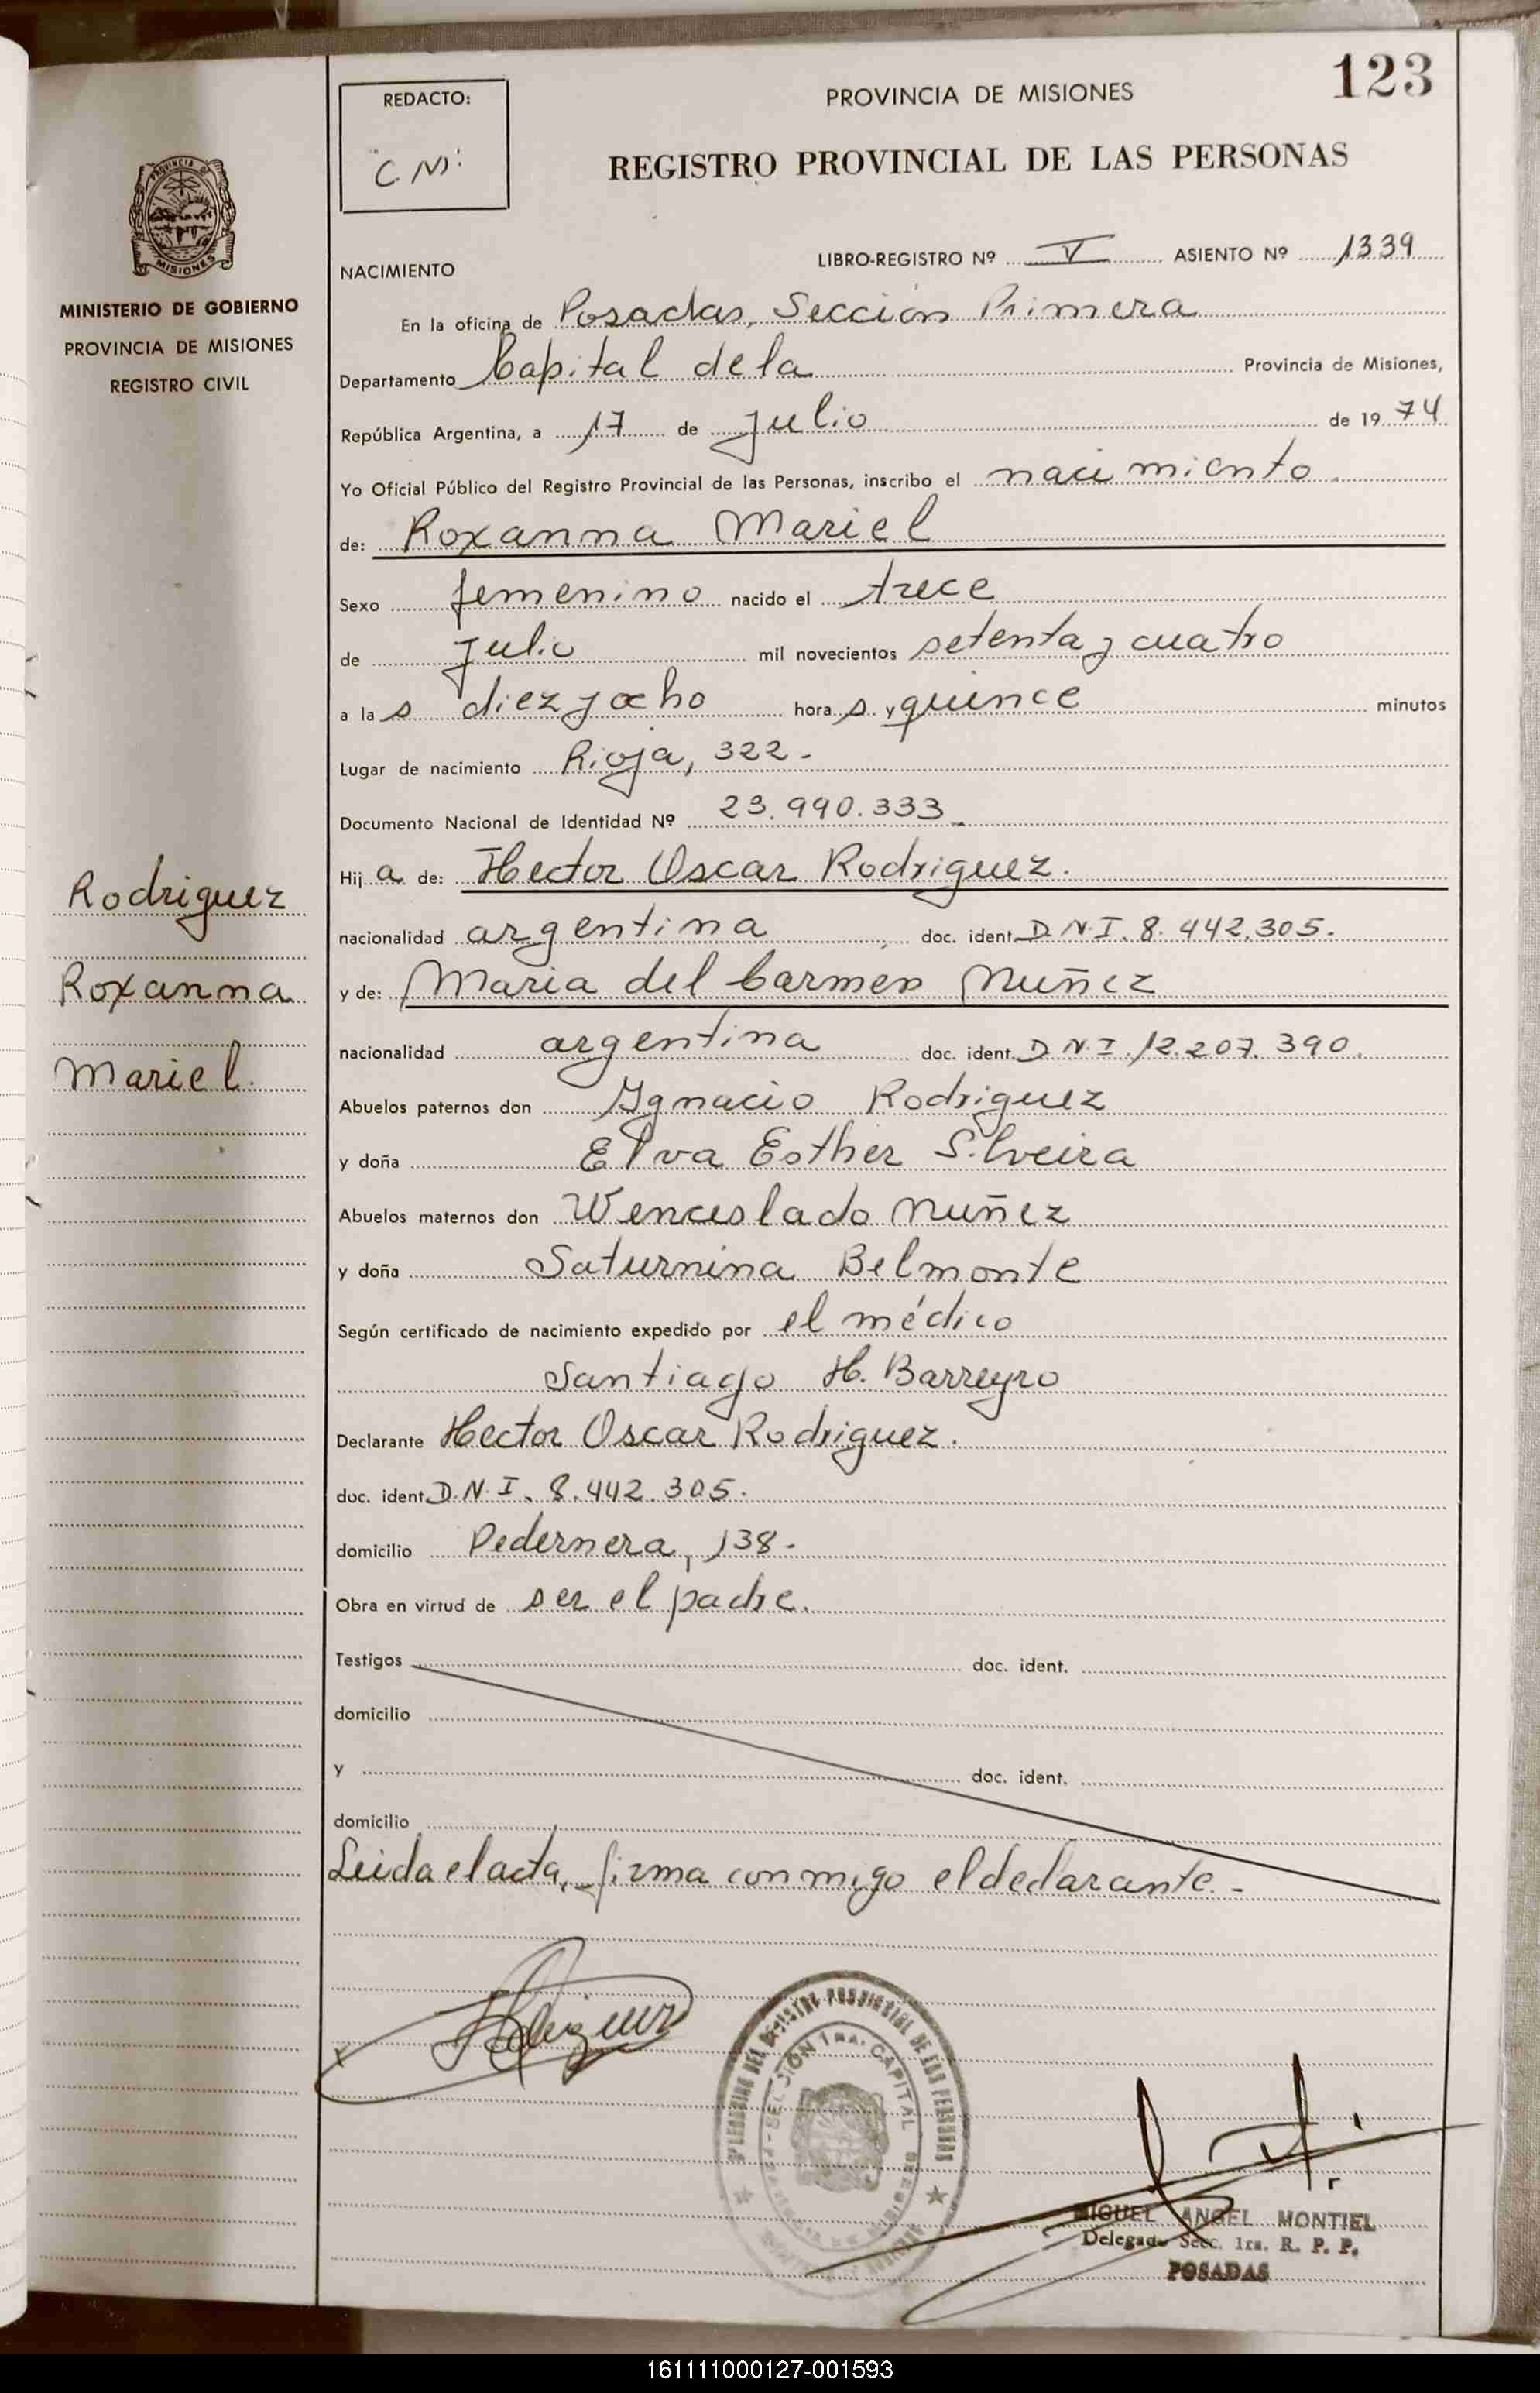 123
REDACTO:
C. N.
PROVINCIA DE MISIONES
REGISTRO PROVINCIAL DE LAS PERSONAS
PROVINCIA
MISIONES
MINISTERIO DE GOBIERNO
PROVINCIA DE MISIONES
REGISTRO CIVIL
NACIMIENTO
LIBRO-REGISTRO Nº V ASIENTO Nº 1339
En la oficina de Posadas, Sección Primera
Departamento Capital de la Provincia de Misiones,
República Argentina, a 17 de Julio de 1974
Yo Oficial Público del Registro Provincial de las Personas, inscribo el nacimiento
de: Roxanna Mariel
Sexo femenino nacido el trece
de Julio mil novecientos setenta y cuatro
a las diez y ocho horas y quince minutos
Lugar de nacimiento Rioja, 322-
Documento Nacional de Identidad Nº 23.990.333
Hija de: Hector Oscar Rodriguez.
nacionalidad argentina doc. ident. D.N.I. 8.442.305.
y de: Maria del Carmen Nuñez
nacionalidad argentina doc. ident. D.N.I. 12.207.390.
Abuelos paternos don Ygnacio Rodriguez
y doña Elva Esther Silveira
Abuelos maternos don Wenceslado Nuñez
y doña Saturnina Belmonte
Según certificado de nacimiento expedido por el médico
Santiago H. Barreyro
Declarante Hector Oscar Rodriguez.
doc. ident. D.N.I. 8.442.305.
domicilio Pedernera, 138-
Obra en virtud de ser el padre.
Testigos doc. ident.
domicilio
y doc. ident.
domicilio
Leida el acta, firma conmigo el declarante.-
Rodriguez
Roxanna
Mariel.
DEL REGISTRO PROVINCIAL DE LAS PERSONAS
SECCIÓN 1ra. CAPITAL
MIGUEL ANGEL MONTIEL
Delegado Secc. 1ra. R. P. P.
POSADAS
161111000127-001593